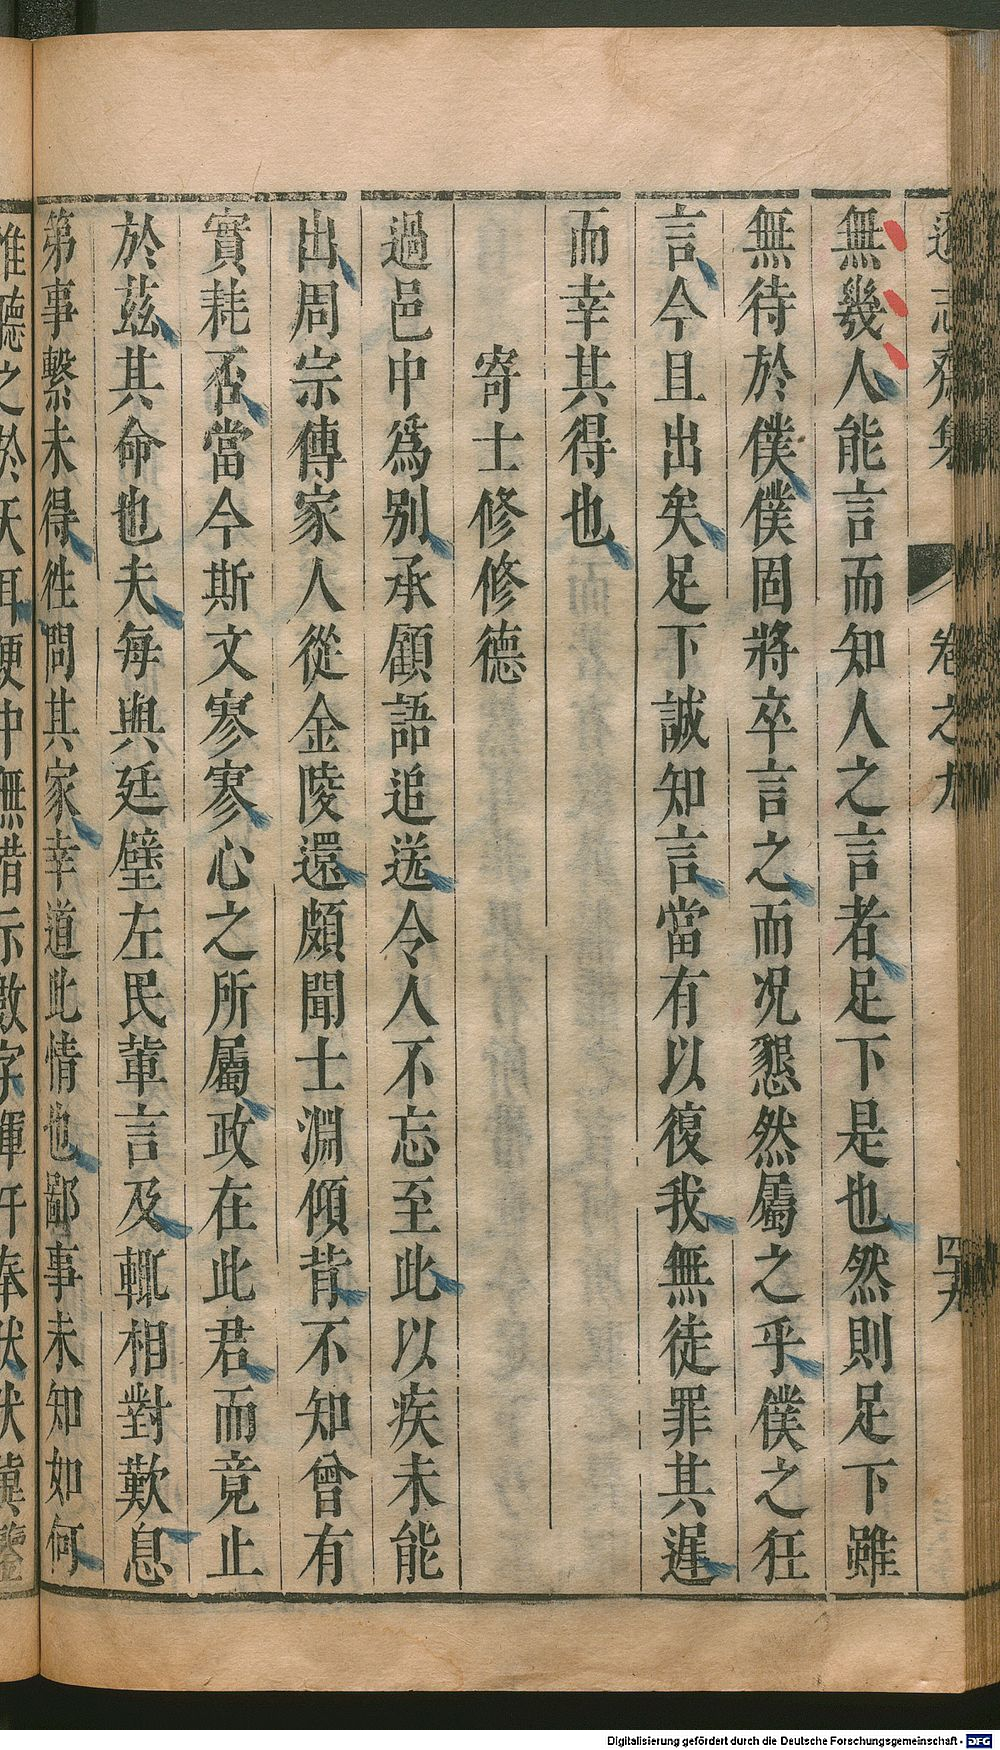 遜志齋集 卷之九 四十九
無幾人能言而知人之言者足下是也然則足下雖
無待於僕僕固將卒言之而况懇然屬之乎僕之狂
言今且出矣足下誠知言當有以復我無徒罪其遲
而幸其得也
寄士修修德
過邑中爲别承顧語追送令人不忘至此以疾未能
出周宗傳家人從金陵還頗聞士淵傾背不知曾有
實耗否當今斯文寥寥心之所屬政在此君而竟止
於茲其命也夫每與廷璧左民軰言及輒相對歎息
第事繫未得徃問其家幸道此情也鄙事未知如何
惟聽之於天耳便中無惜示數字
Digitalisierung gefördert durch die Deutsche Forschungsgemeinschaft - DFG